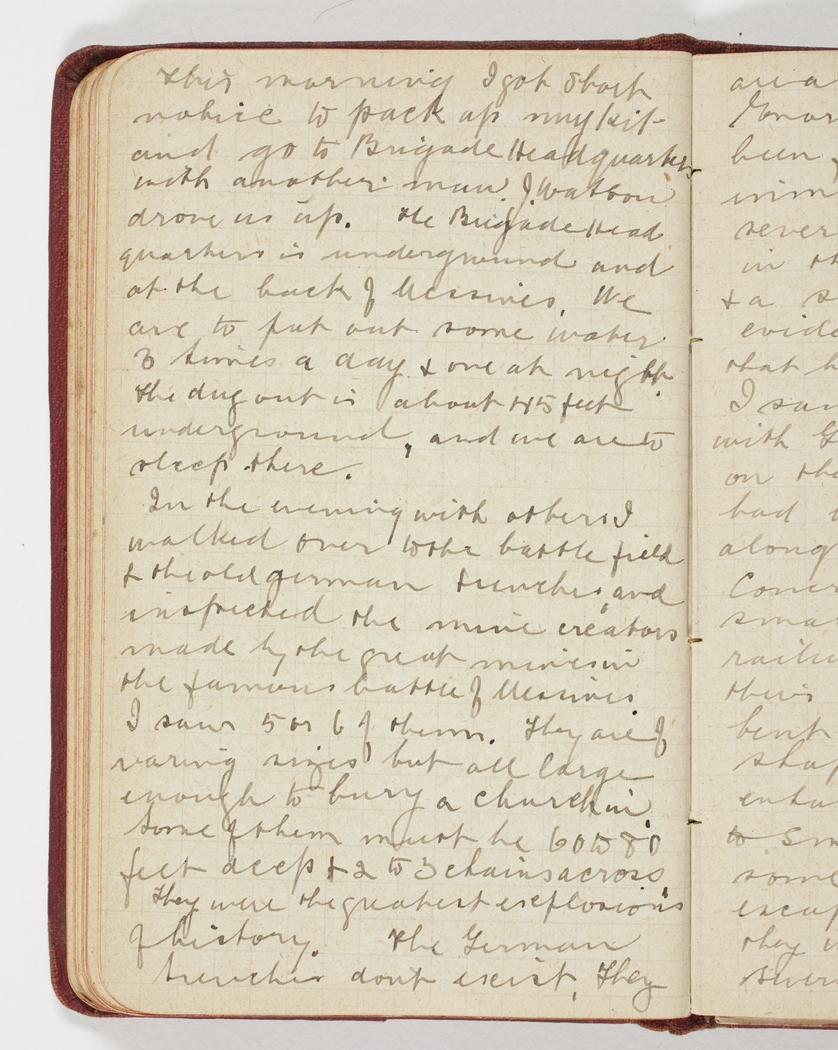 This morning I got short
notice to pack up my kit
and go to Brigade Headquarters
with another man. J. Watson
drove us up. The Brigade Head
quarters is underground and
at the back of Messines. We
are to put out some water
3 times a day & one at night.
The dug out is about 45 feet
underground, and we are to
sleep there.
In the evening with others I
walked over to the battle field
& the old german trenches and
inspected the mine creators
made by the great mines in
the famous battle of Messines
I saw 5 or 6 of them. They are of
varing sizes but all large
enough to bury a church in
Some of them must be 60 to 80
feet deep & 2 to 3 chains across
They were the greatest explosions
of history. The German
trenches dont exist, They
area
been
sever
in th
& a s
evide
that h
I saw
with G
on the
had
along
Concr
smal
railw
bent
shap
to Sm
some
escap
they